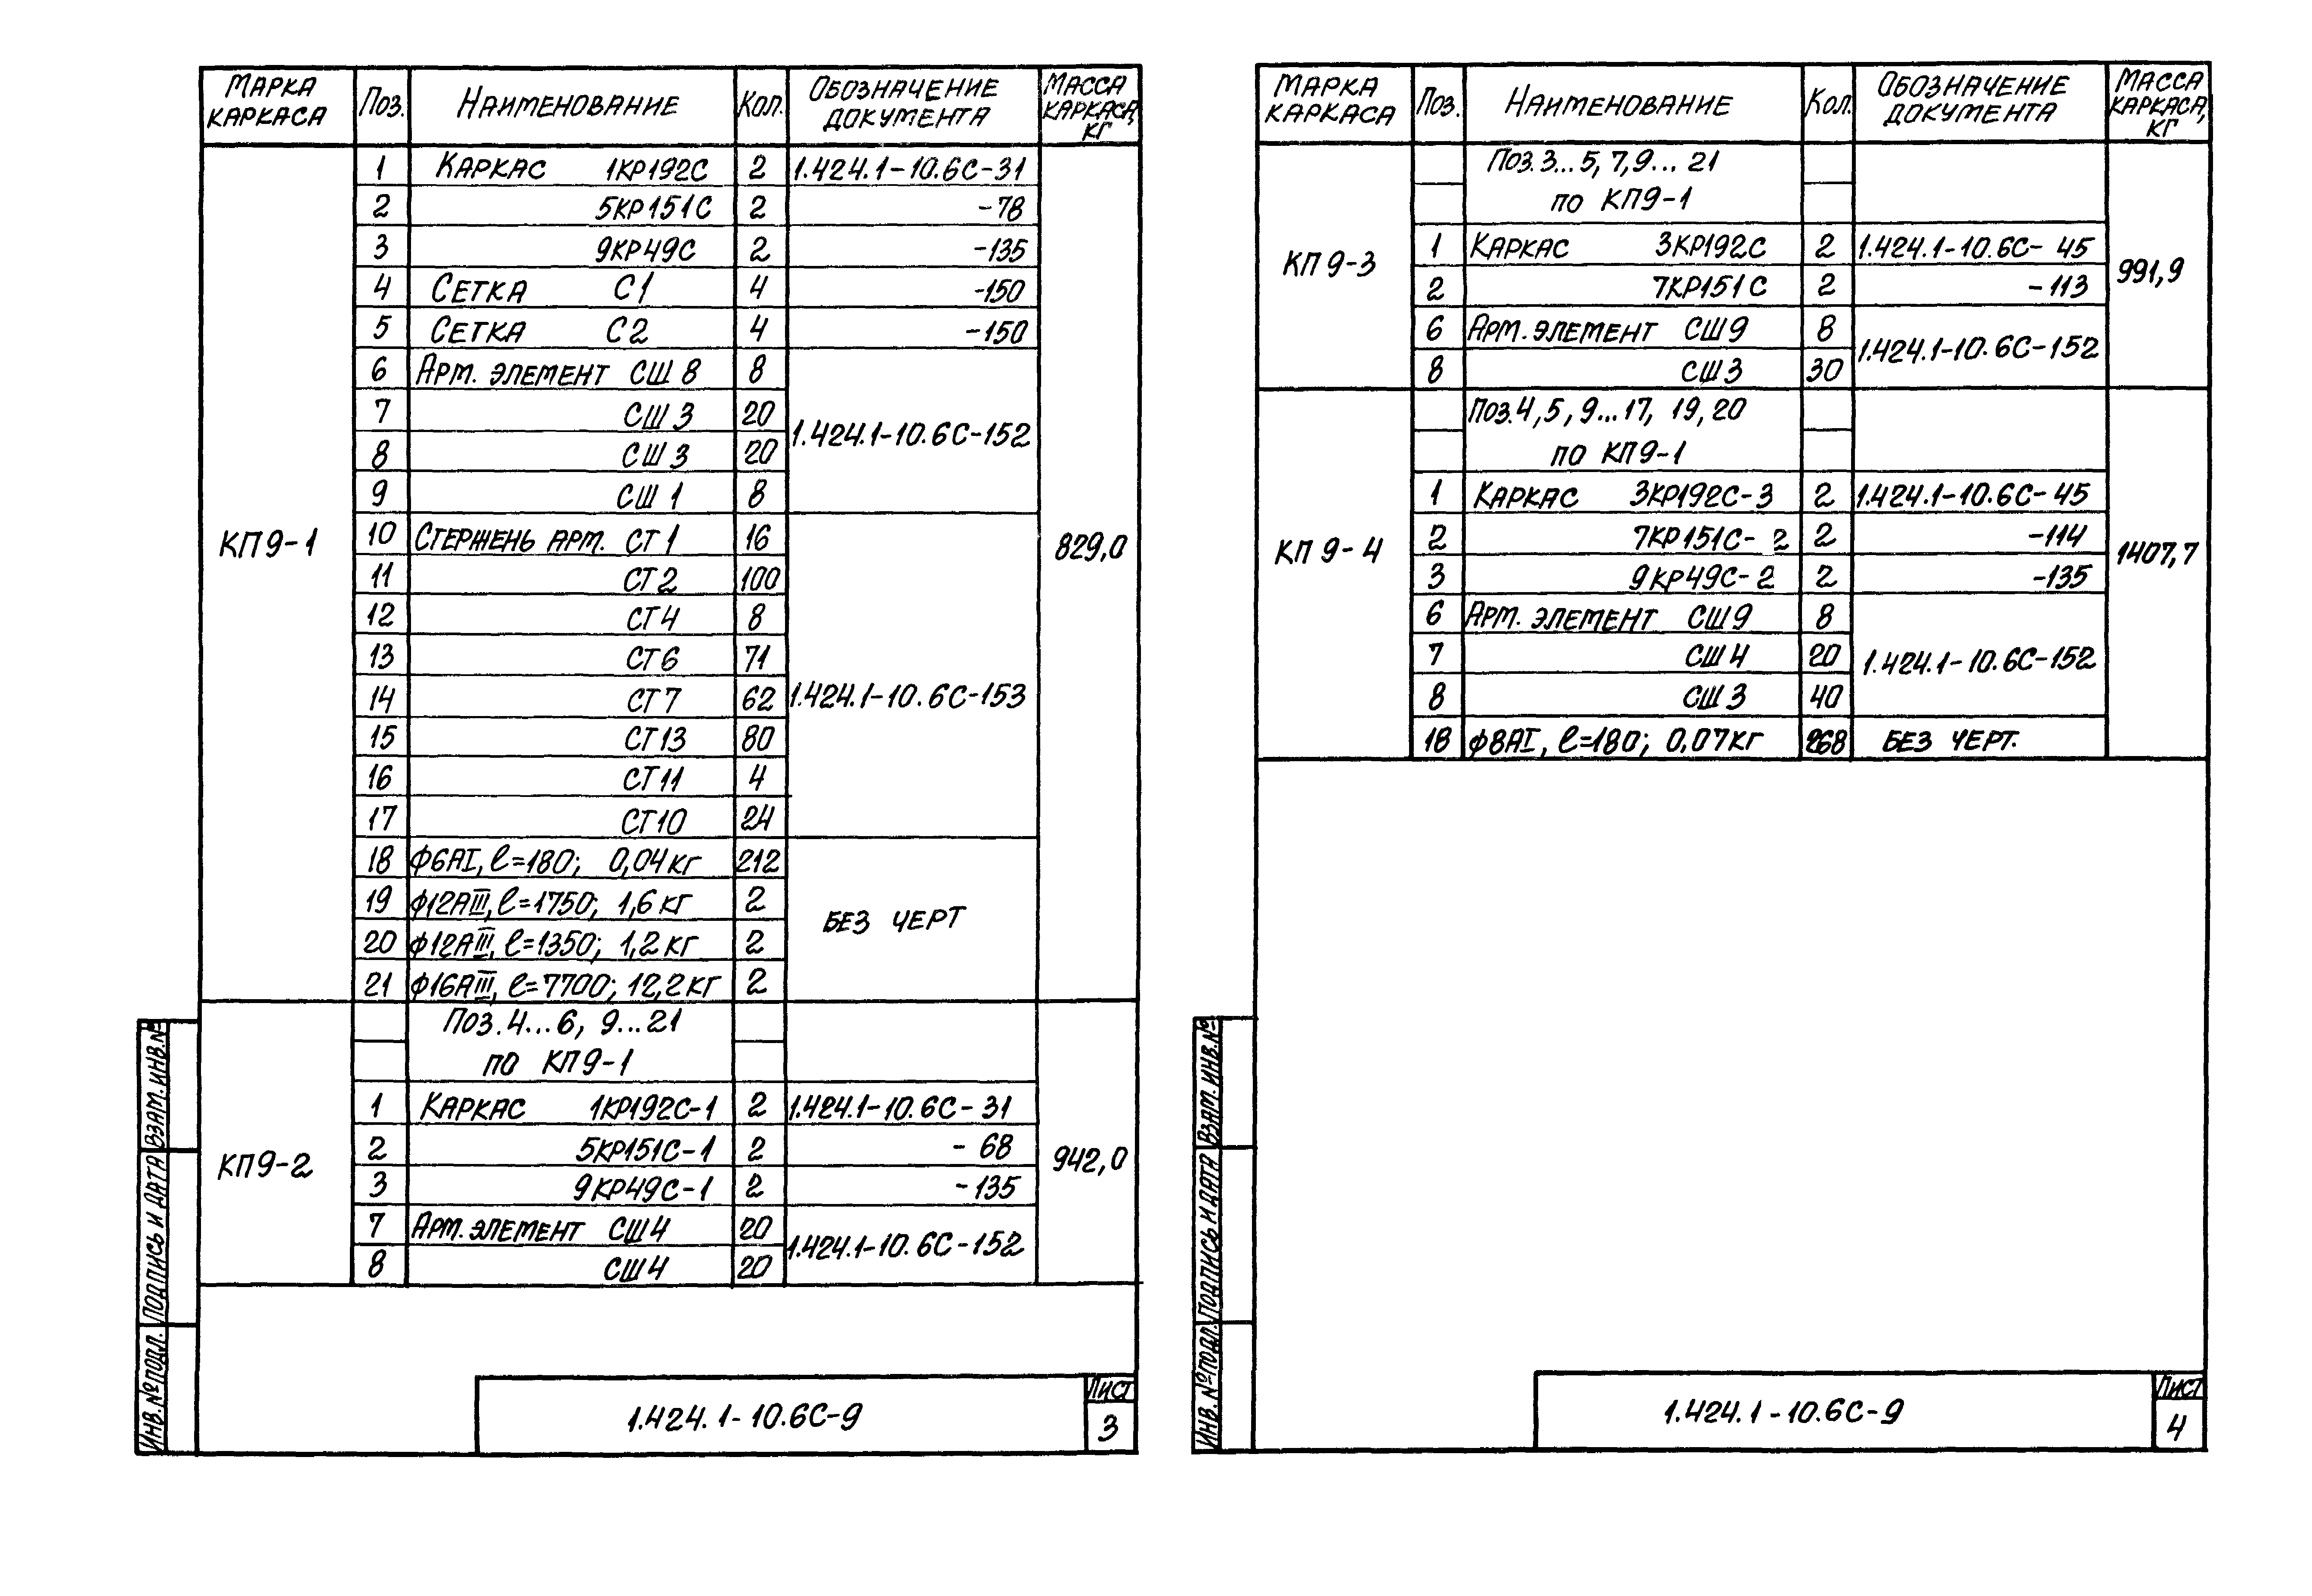 МАРКА КАРКАСА Поз. НАИМЕНОВАНИЕ Кол. ОБОЗНАЧЕНИЕ ДОКУМЕНТА МАССА КАРКАСА, КГ
КП9-1 829,0
1 КАРКАС 1КР192С 2 1.424.1-10.6С-31
2 5КР151С 2 -78
3 9КР49С 2 -135
4 СЕТКА С1 4 -150
5 СЕТКА С2 4 -150
6 АРМ. ЭЛЕМЕНТ СШ8 8
7 СШ3 20 1.424.1-10.6С-152
8 СШ3 20
9 СШ1 8
10 СТЕРЖЕНЬ АРМ. СТ1 16
11 СТ2 100
12 СТ4 8
13 СТ6 71
14 СТ7 62 1.424.1-10.6С-153
15 СТ13 80
16 СТ11 4
17 СТ10 24
18 ф6АI, ℓ=180; 0,04кг 212
19 ф12АIII, ℓ=1750; 1,6кг 2 БЕЗ ЧЕРТ
20 ф12АIII, ℓ=1350; 1,2кг 2
21 ф16АIII, ℓ=7700; 12,2кг 2
КП9-2 942,0
Поз. 4...6, 9...21
ПО КП9-1
1 КАРКАС 1КР192С-1 2 1.424.1-10.6С-31
2 5КР151С-1 2 -68
3 9КР49С-1 2 -135
7 АРМ. ЭЛЕМЕНТ СШ4 20 1.424.1-10.6С-152
8 СШ4 20
ИНВ.№ПОДЛ. ПОДПИСЬ И ДАТА ВЗАМ.ИНВ.№
1.424.1-10.6С-9 ЛИСТ
3
МАРКА КАРКАСА Поз. НАИМЕНОВАНИЕ Кол. ОБОЗНАЧЕНИЕ ДОКУМЕНТА МАССА КАРКАСА, КГ
КП9-3 991,9
Поз. 3...5, 7, 9...21
ПО КП9-1
1 КАРКАС 3КР192С 2 1.424.1-10.6С-45
2 7КР151С 2 -113
6 АРМ. ЭЛЕМЕНТ СШ9 8 1.424.1-10.6С-152
8 СШ3 30
КП9-4 1407,7
Поз. 4, 5, 9...17, 19, 20
ПО КП9-1
1 КАРКАС 3КР192С-3 2 1.424.1-10.6С-45
2 7КР151С-2 2 -114
3 9КР49С-2 2 -135
6 АРМ. ЭЛЕМЕНТ СШ9 8
7 СШ4 20 1.424.1-10.6С-152
8 СШ3 40
18 ф8АI, ℓ=180; 0,07кг 268 БЕЗ ЧЕРТ.
ИНВ.№ПОДЛ. ПОДПИСЬ И ДАТА ВЗАМ.ИНВ.№
1.424.1-10.6С-9 ЛИСТ
4